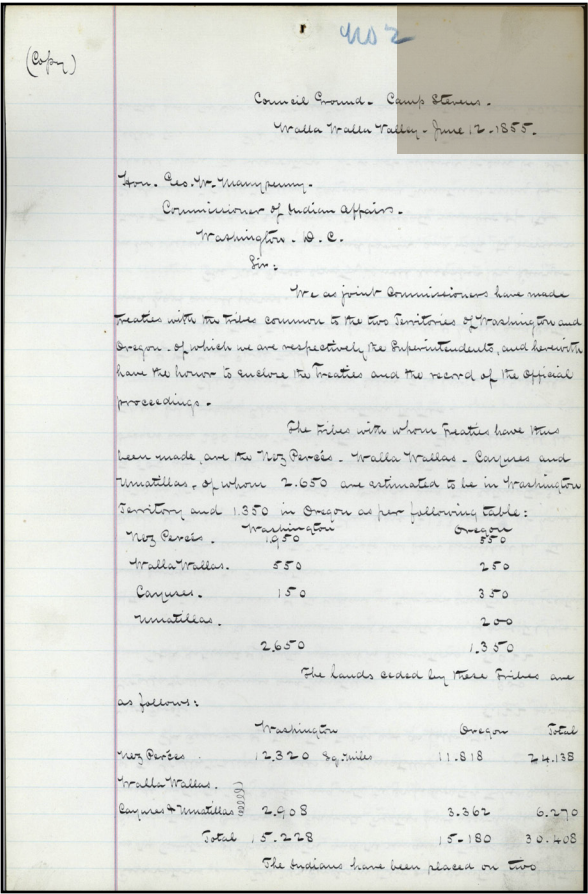 No 2
(Copy)
Council Ground - Camp Stevens.
Walla Walla Valley - June 12 - 1855.
Hon. Geo. W. Manypenny.
Commissioner of Indian Affairs.
Washington. D.C.
Sir:
We as joint Commissioners have made
treaties with the tribes common to the two Territories of Washington and
Oregon. of which we are respectively the Superintendents, and herewith
have the honor to enclose the Treaties and the record of the official
proceedings.
The tribes with whom Treaties have thus
been made, are the Nez Percés - Walla Wallas - Cayuses and
Umatillas, of whom 2.650 are estimated to be in Washington
Territory and 1.350 in Oregon as per following table:
Washington Oregon
Nez Percés. 1,950 550
Walla Wallas. 550 250
Cayuses. 150 350
Umatillas. 200
2.650 1.350
The lands ceded by these Tribes are
as follows:
Washington Oregon Total
Nez Percés 12.320 Sq. Miles 11.818 24.138
Walla Wallas.
Cayuses & Umatillas 2.908 3.362 6.270
Total 15.228 15-180 30.408
The Indians have been placed on two